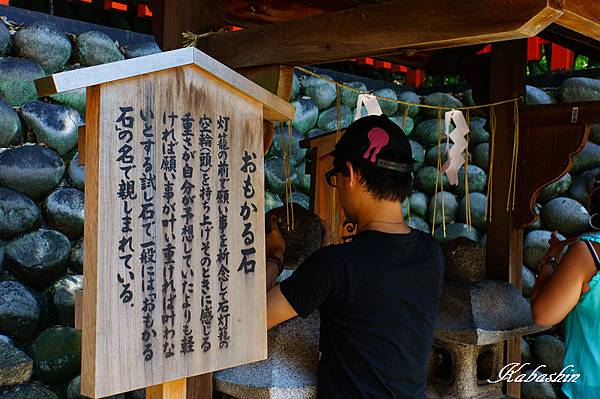 おもかる石
石灯籠の前で願い事を祈念して石灯籠の
空輪(頭)を持ち上げ、そのときに感じる
重さが、自分が予想していたよりも軽
ければ願い事が叶い、重ければ叶わな
いとする試し石で、一般には“おもかる
石”の名で親しまれている。
Kabashin